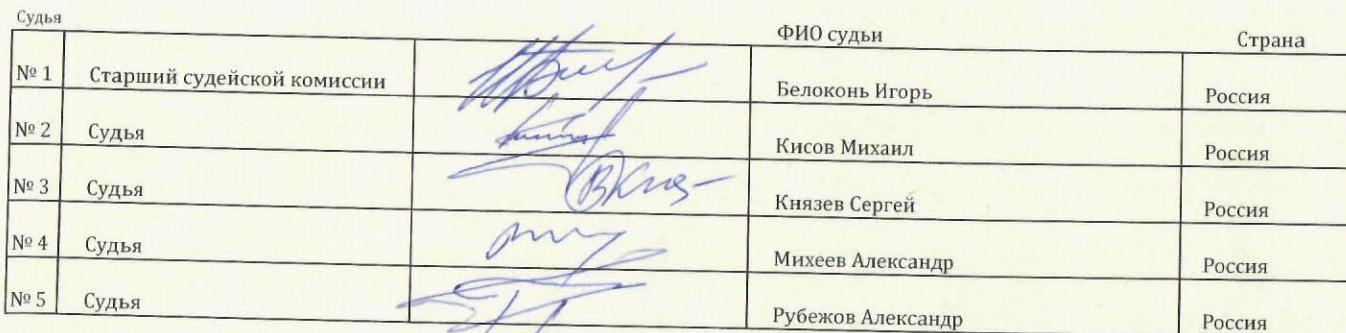 Судья ФИО судьи Страна
№ 1 Старший судейской комиссии Белоконь Игорь Россия
№ 2 Судья Кисов Михаил Россия
№ 3 Судья Князев Сергей Россия
№ 4 Судья Михеев Александр Россия
№ 5 Судья Рубежов Александр Россия